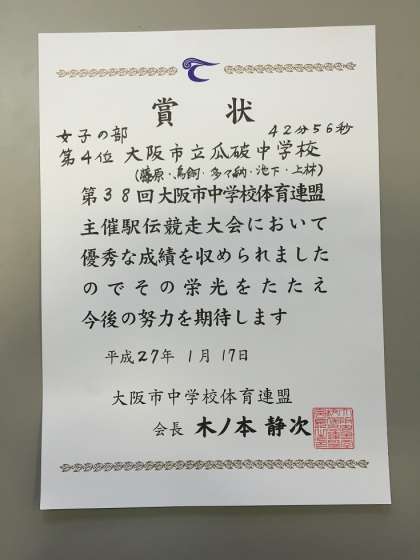 賞状
女子の部 42分56秒
第4位 大阪市立瓜破中学校
(藤原・鳥飼・多々納・池下・上林)
第38回大阪市中学校体育連盟
主催駅伝競走大会において
優秀な成績を収められました
のでその栄光をたたえ
今後の努力を期待します
平成27年 1月 17日
大阪市中学校体育連盟
会長 木ノ本 静次